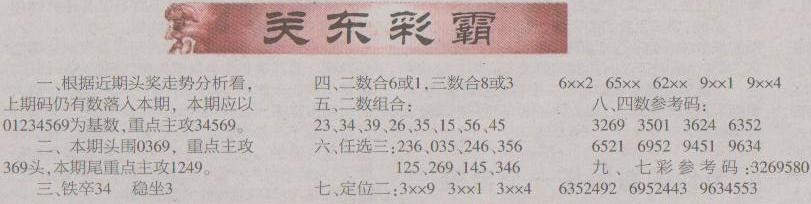 关东彩霸
一、根据近期头奖走势分析看，
上期码仍有数落入本期，本期应以
01234569为基数，重点主攻34569。
二、本期头围0369，重点主攻
369头，本期尾重点主攻1249。
三、铁卒34 稳坐3
四、二数合6或1，三数合8或3
五、二数组合：
23、34、39、26、35、15、56、45
六、任选三：236、035、246、356
125、269、145、346
七、定位二：3××9 3××1 3××4
6××2 65×× 62×× 9××1 9××4
八、四数参考码：
3269 3501 3624 6352
6521 6952 9451 9634
九、七彩参考码：3269580
6352492 6952443 9634553